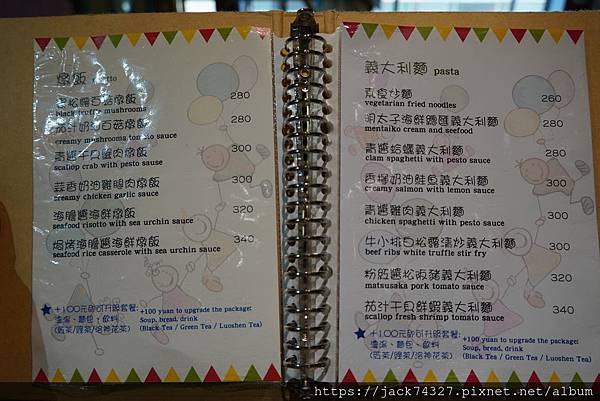 燉飯 risotto
黑松露百菇燉飯 280
black truffle mushrooms
茄汁奶油百菇燉飯 280
creamy mushrooms tomato sauce
青醬干貝蟹肉燉飯 300
scallop crab with pesto sauce
蒜香奶油雞腿肉燉飯 300
creamy chicken garlic sauce
海膽醬海鮮燉飯 320
seafood risotto with sea urchin sauce
焗烤海膽醬海鮮燉飯 340
seafood rice casserole with sea urchin sauce
+100元即可升級套餐: +100 yuan to upgrade the package:
濃湯、麵包、飲料 Soup, bread, drink
(紅茶/綠茶/洛神花茶) (Black Tea / Green Tea / Luoshen Tea)
義大利麵 pasta
素食炒麵 260
vegetarian fried noodles
明太子海鮮義大利麵 320
mentaiko cream and seefood
青醬蛤蠣義大利麵 280
clam spaghetti with pesto sauce
香檸奶油鮭魚義大利麵 300
creamy salmon with lemon sauce
青醬雞肉義大利麵 300
chicken spaghetti with pesto sauce
牛小排白松露清炒義大利麵 300
beef ribs white truffle stir fry
粉紅醬松阪豬義大利麵 320
matsusaka pork tomato sauce
茄汁干貝鮮蝦義大利麵 340
scallop fresh shrimp tomato sauce
+100元即可升級套餐: +100 yuan to upgrade the package:
濃湯、麵包、飲料 Soup, bread, drink
(紅茶/綠茶/洛神花茶) (Black Tea / Green Tea / Luoshen Tea)
https://jack74327.pixnet.net/album